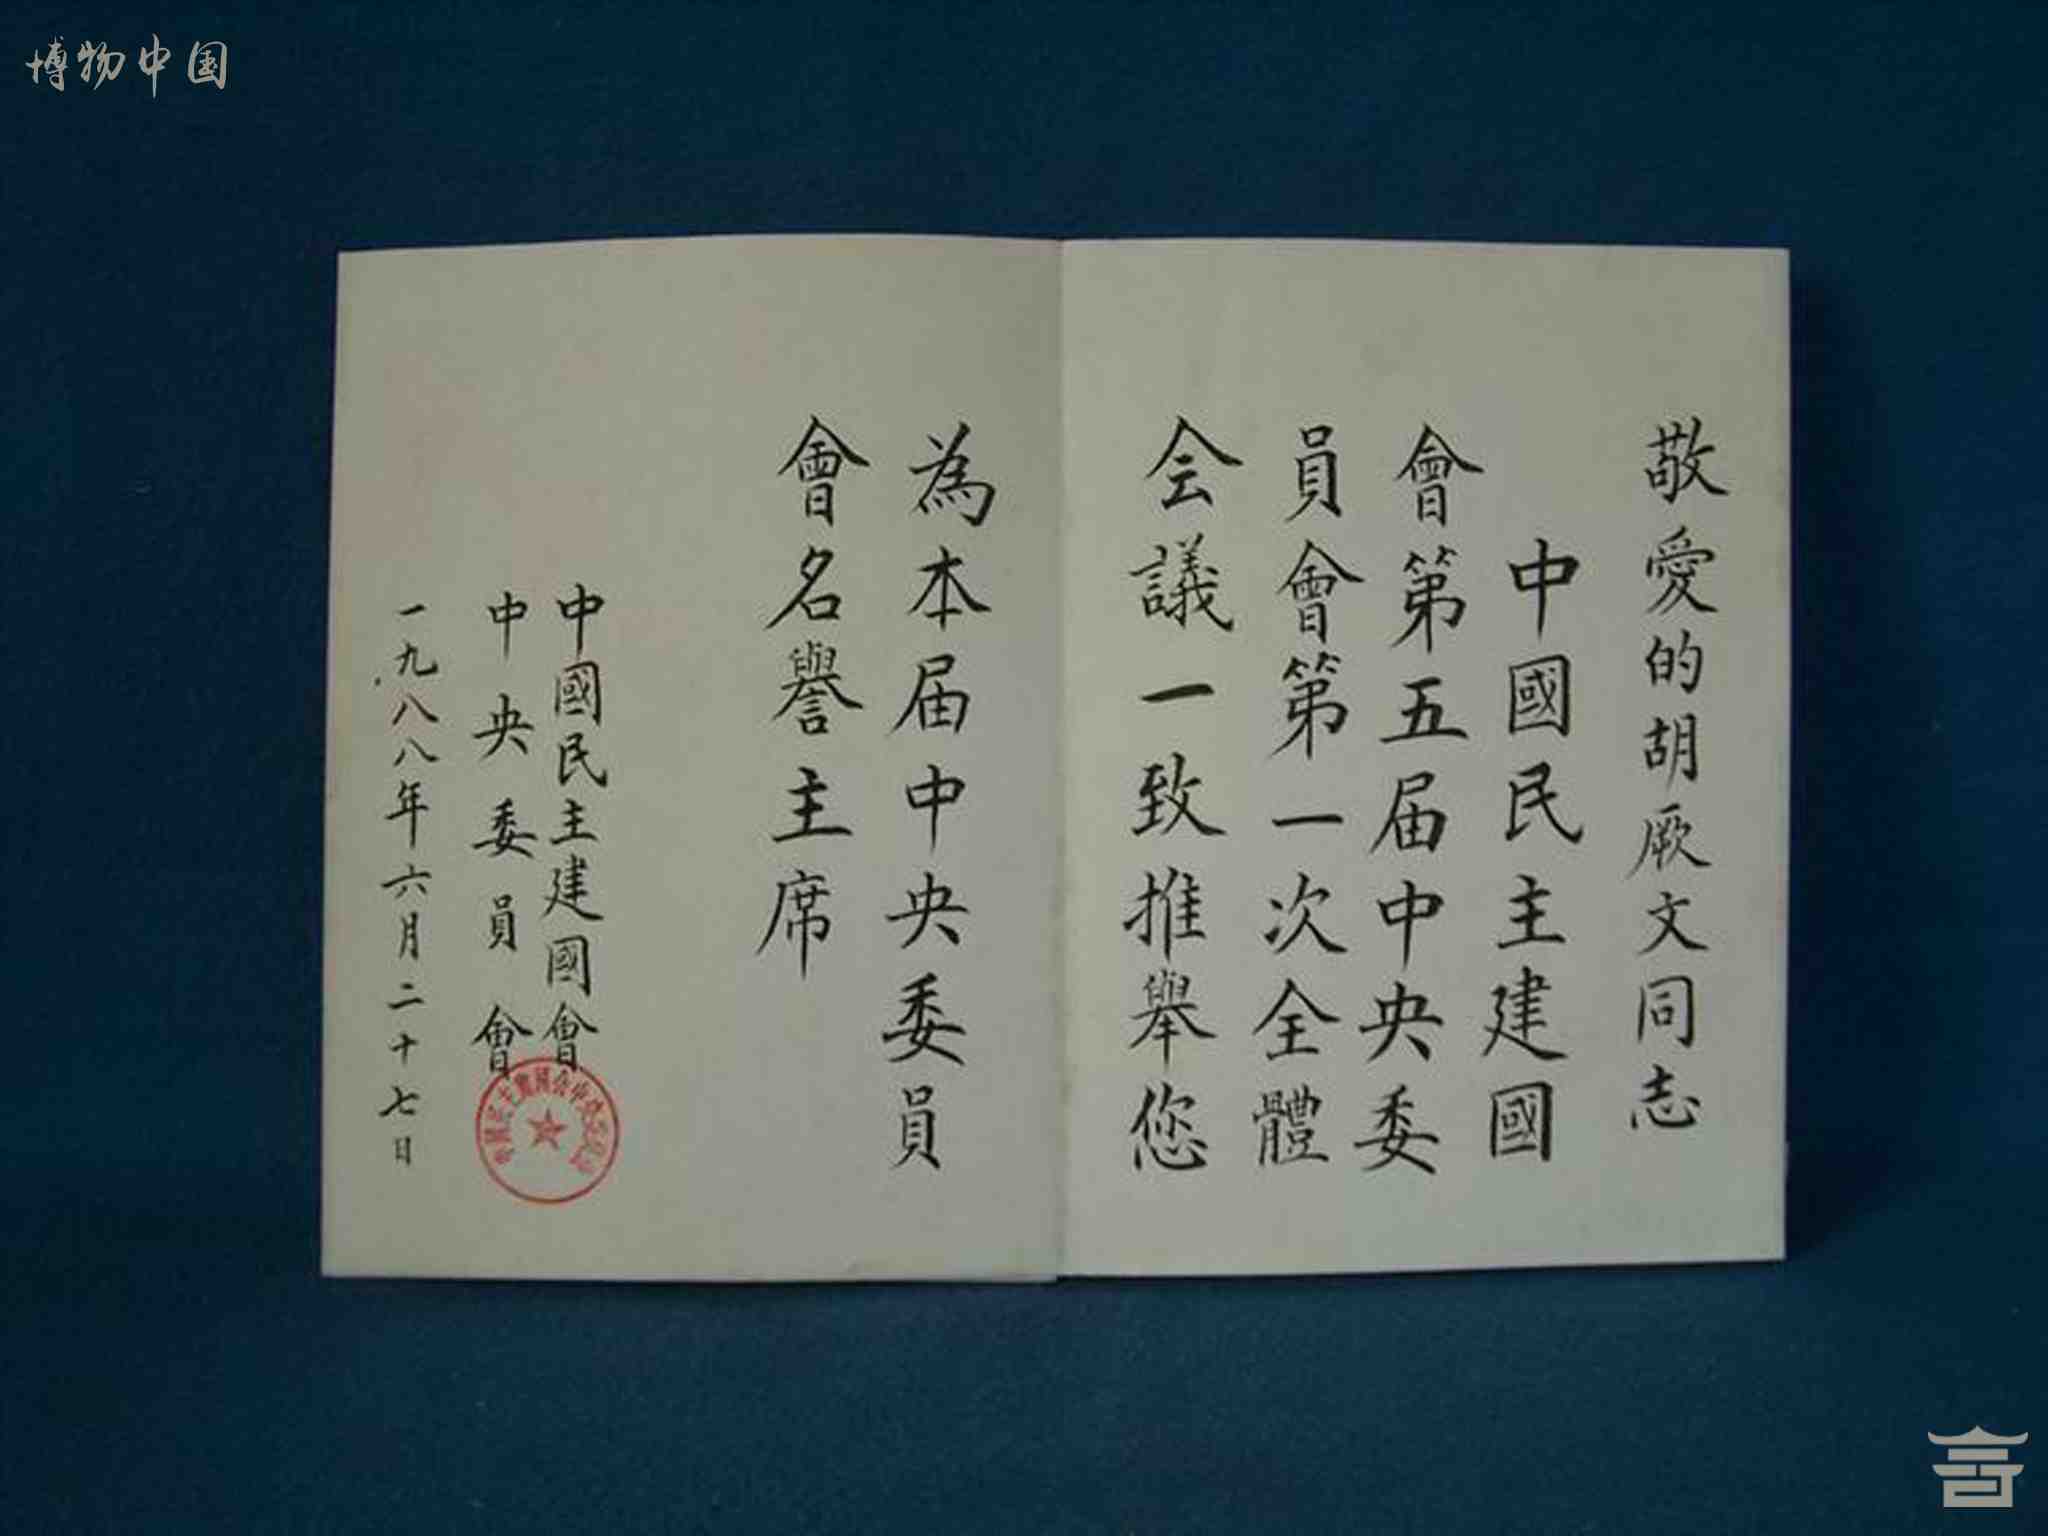 博物中国
敬愛的胡厥文同志
中國民主建國
會第五届中央委
員會第一次全體
会議一致推舉您
為本届中央委員
會名譽主席
中國民主建國會
中央委員會
一九八八年六月二十七日